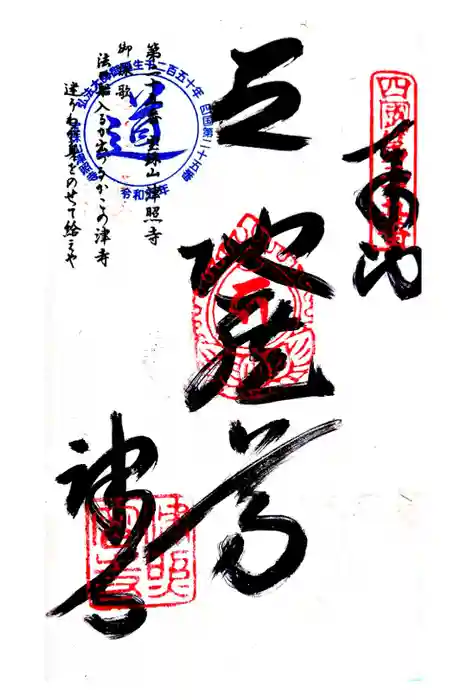 奉納
四國第二十五番
地蔵尊
津寺
津照
第二十五番 宝珠山 津照寺
御詠歌
法の船入るか出るかこの津寺
迷う我身をのせて給えや
弘法大師御誕生千二百五十年
四国第二十五番
道
令和五年